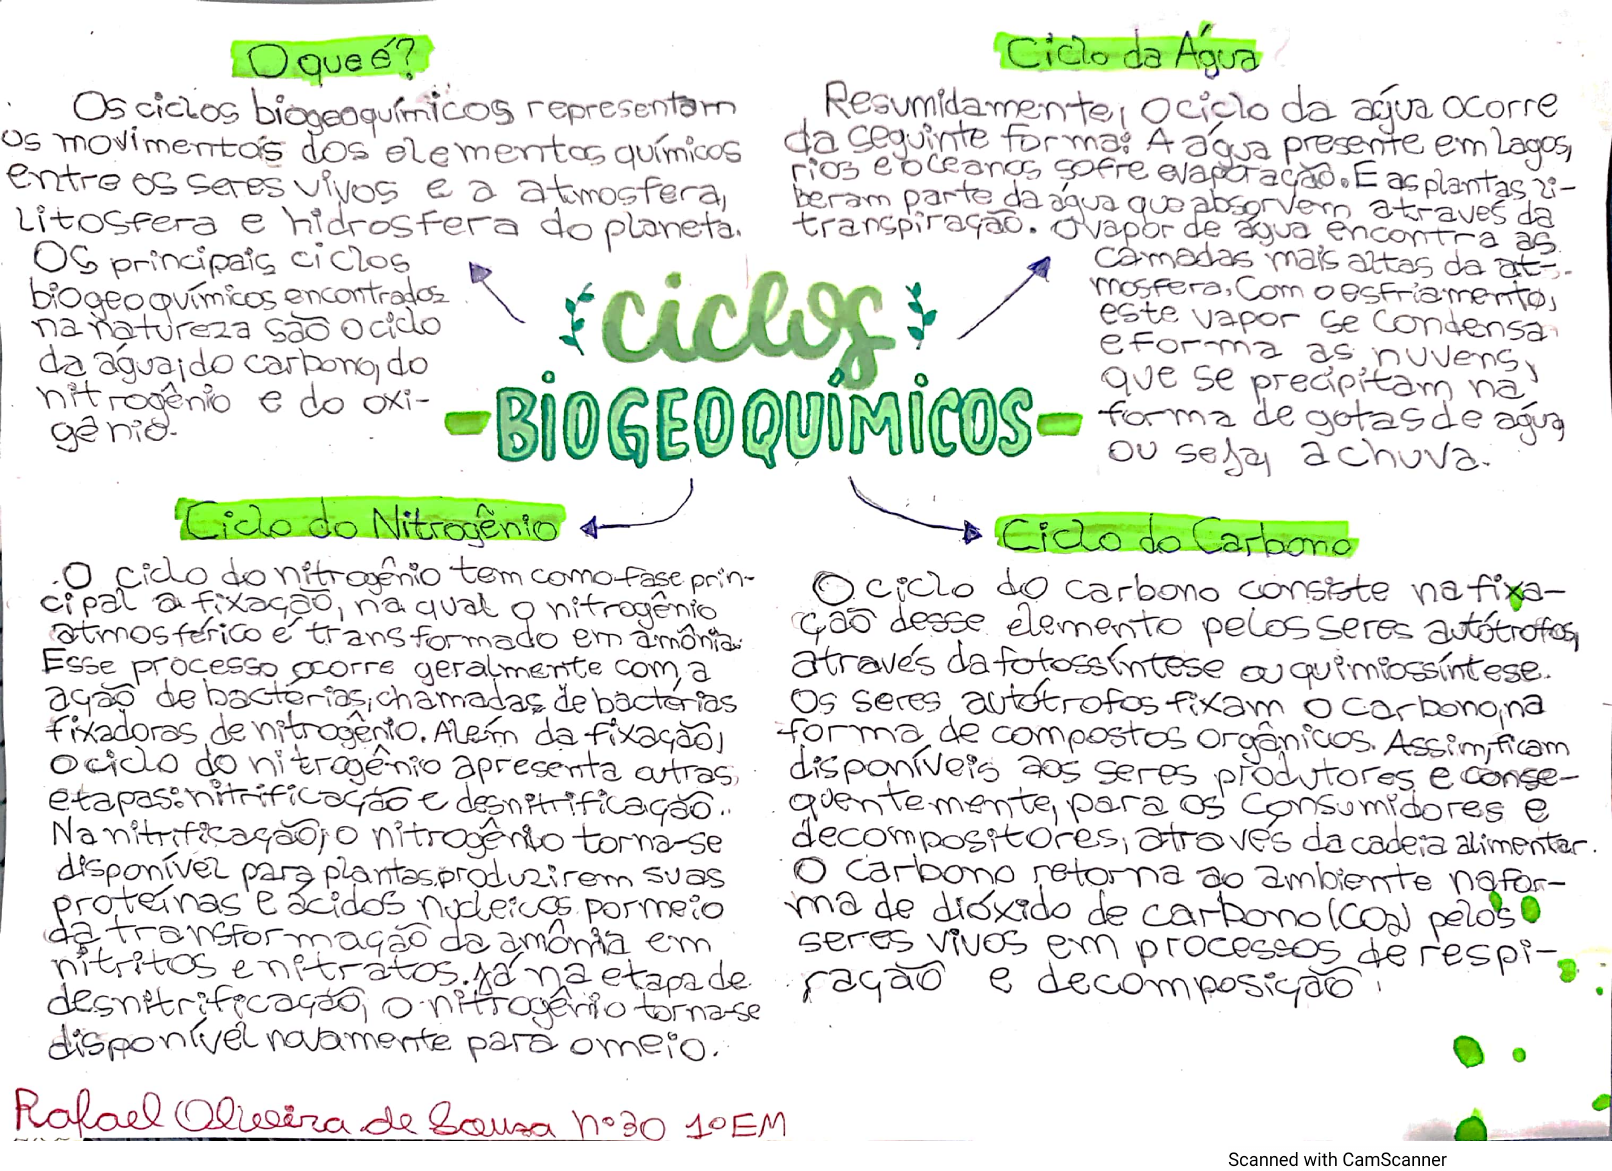 O que é?
Os ciclos biogeoquímicos representam
os movimentos dos elementos químicos
entre os seres vivos e a atmosfera,
litosfera e hidrosfera do planeta.
Os principais ciclos
biogeoquímicos encontrados
na natureza são o ciclo
da água, do carbono, do
nitrogênio e do oxi-
gênio.
Ciclo da Água
Resumidamente, o ciclo da água ocorre
da seguinte forma: A água presente em lagos,
rios e oceanos sofre evaporação. E as plantas li-
beram parte da água que absorvem através da
transpiração. O vapor de água encontra as
camadas mais altas da at-
mosfera. Com o esfriamento,
este vapor se condensa
e forma as nuvens,
que se precipitam na
forma de gotas de água
ou seja, a chuva.
ciclos
-BIOGEOQUÍMICOS-
Ciclo do Nitrogênio
O ciclo do nitrogênio tem como fase prin-
cipal a fixação, na qual o nitrogênio
atmosférico é transformado em amônia.
Esse processo ocorre geralmente com a
ação de bactérias, chamadas de bactérias
fixadoras de nitrogênio. Além da fixação,
o ciclo do nitrogênio apresenta outras
etapas: nitrificação e desnitrificação.
Na nitrificação, o nitrogênio torna-se
disponível para plantas produzirem suas
proteínas e ácidos nucleicos por meio
da transformação da amônia em
nitritos e nitratos. Já na etapa de
desnitrificação, o nitrogênio torna-se
disponível novamente para o meio.
Ciclo do Carbono
O ciclo do carbono consiste na fixa-
ção desse elemento pelos seres autótrofos,
através da fotossíntese ou quimiossíntese.
Os seres autótrofos fixam o carbono, na
forma de compostos orgânicos. Assim, ficam
disponíveis aos seres produtores e conse-
quentemente, para os consumidores e
decompositores, através da cadeia alimentar.
O carbono retorna ao ambiente na for-
ma de dióxido de carbono (CO2) pelos
seres vivos em processos de respi-
ração e decomposição.
Rafael Oliveira de Sousa nº30 1º EM
Scanned with CamScanner